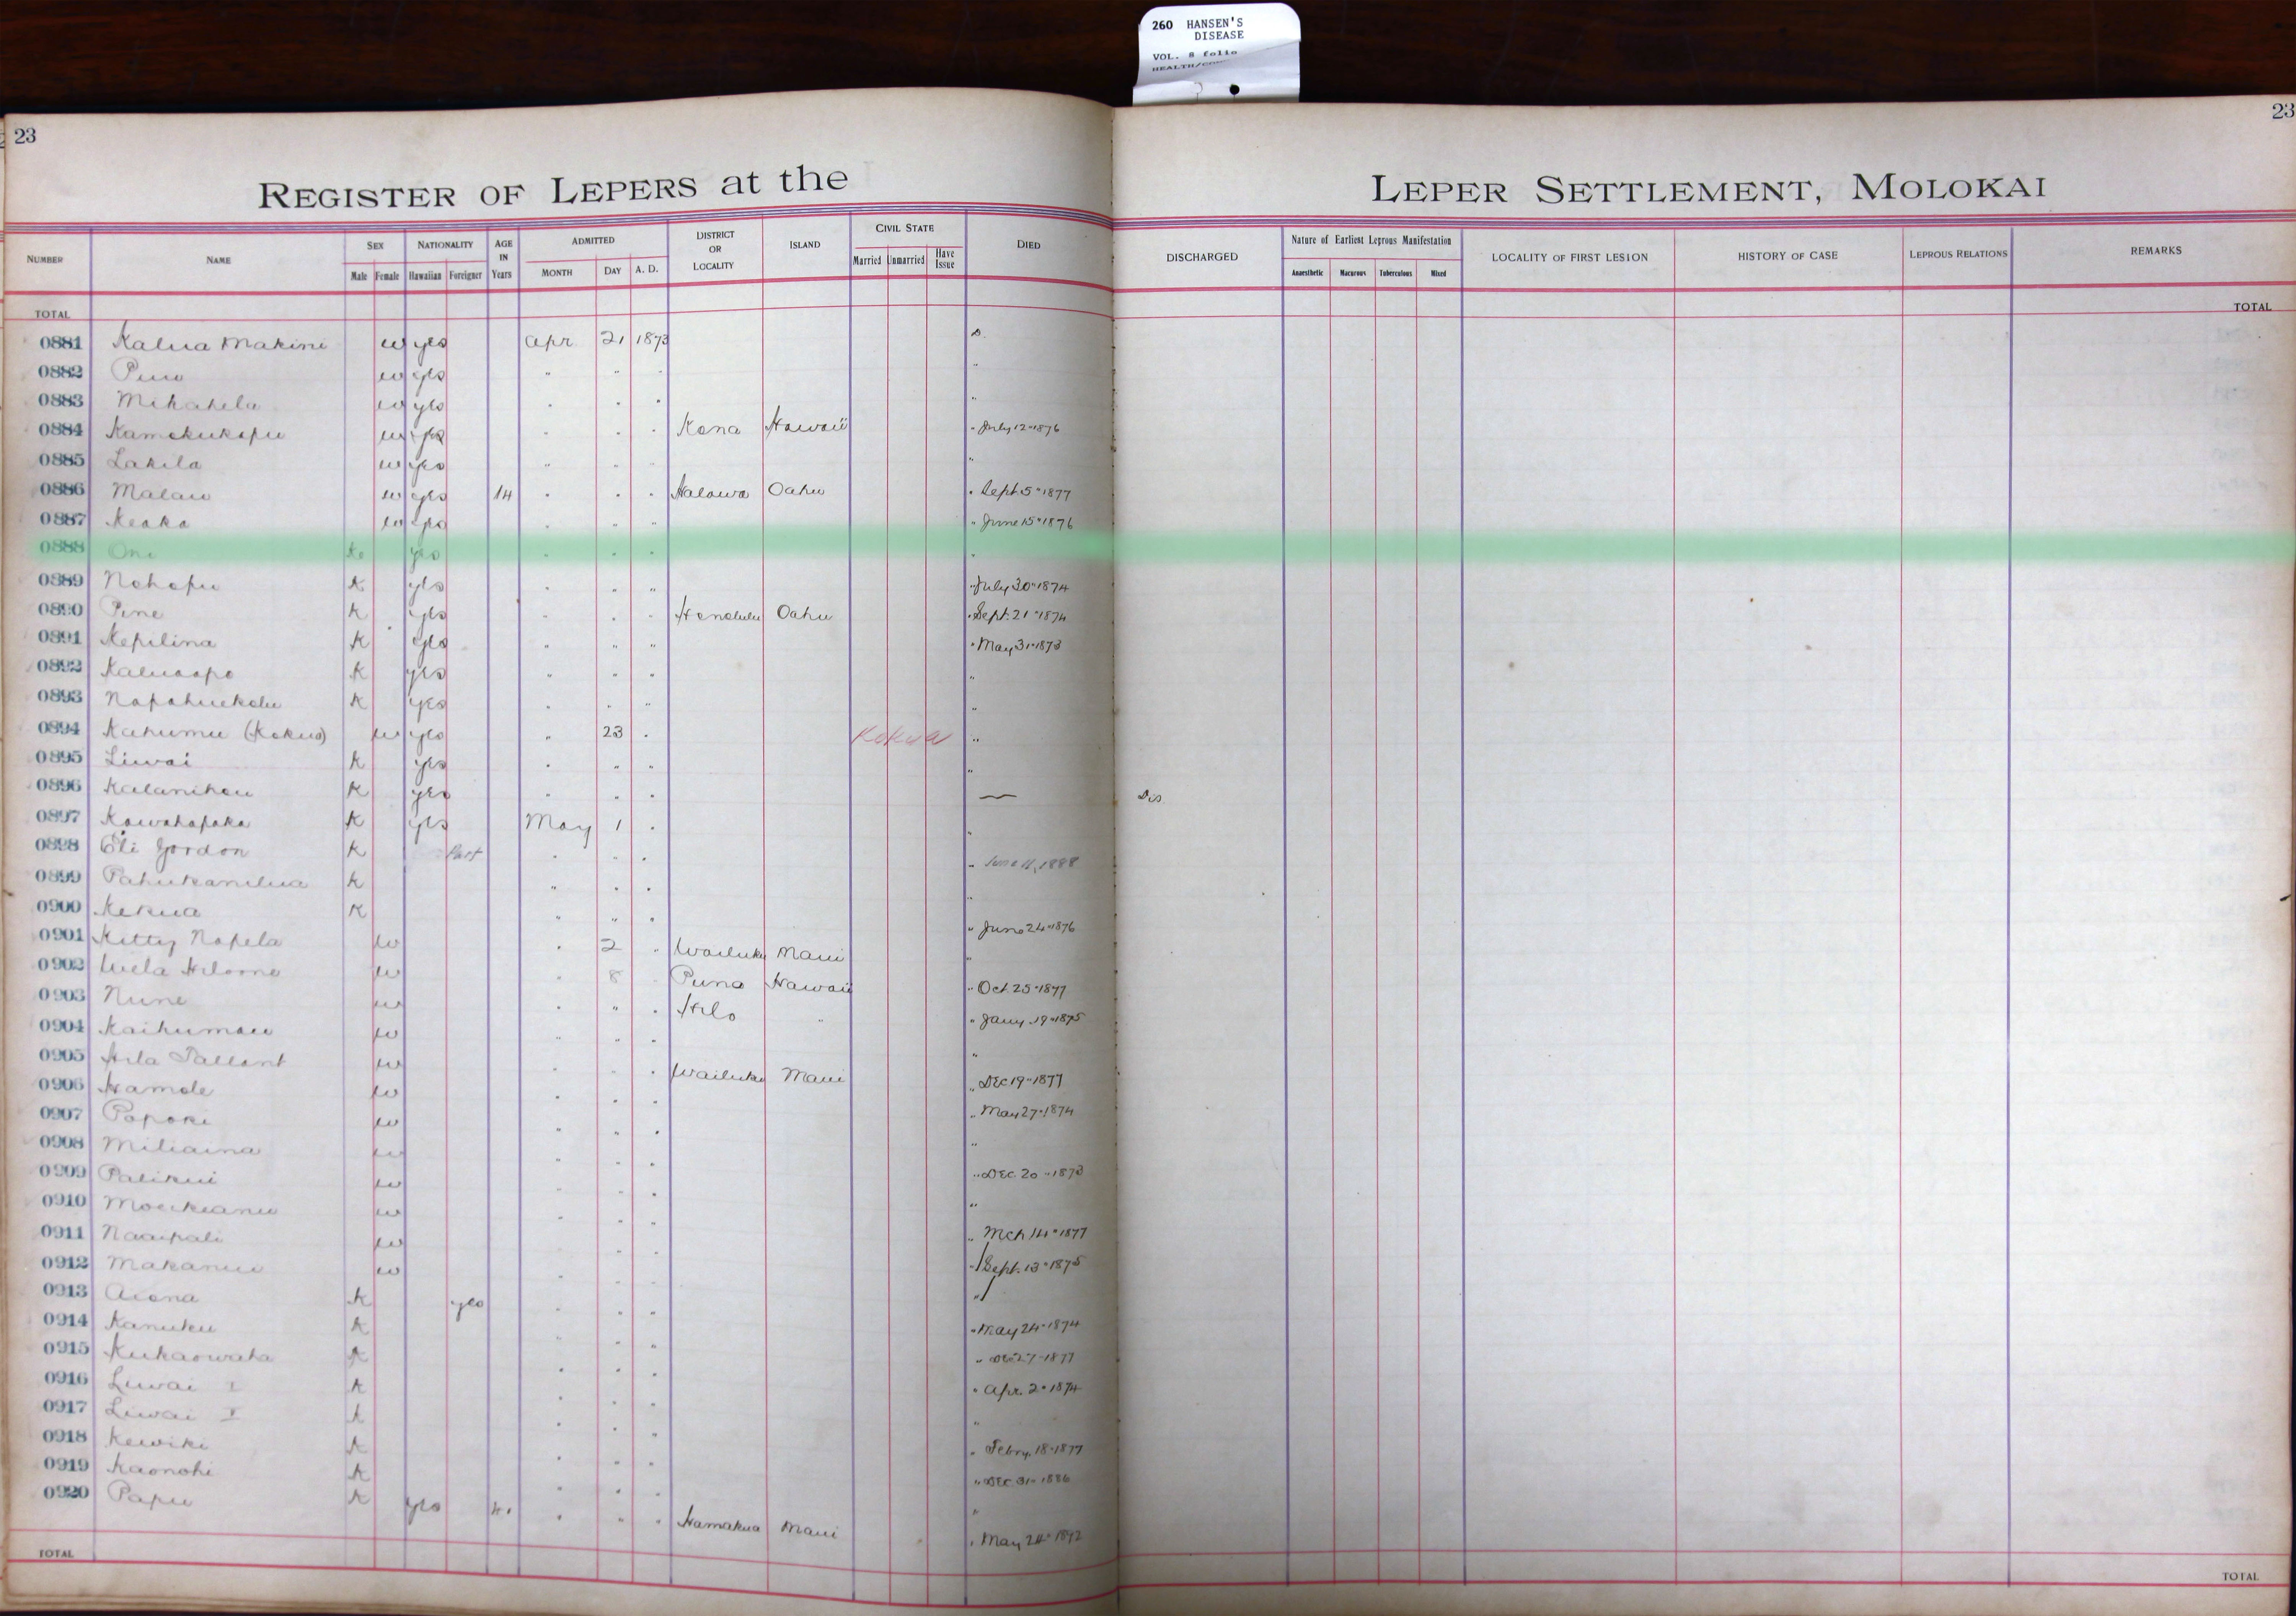 260 HANSEN'S
DISEASE
VOL. 8 folio
23
23
REGISTER OF LEPERS at the LEPER SETTLEMENT, MOLOKAI
NUMBER NAME SEX NATIONALITY AGE IN Years ADMITTED DISTRICT OR LOCALITY ISLAND CIVIL STATE DIED DISCHARGED Nature of Earliest Leprous Manifestation LOCALITY OF FIRST LESION HISTORY OF CASE LEPROUS RELATIONS REMARKS
Male Female Hawaiian Foreigner MONTH DAY A. D. Married Unmarried Have Issue Anaesthetic Macurous Tuberculous Mixed
TOTAL TOTAL
0881 Kalua Makini w yes Apr 21 1873 D.
0882 w yes " " " "
0883 Mikahela w yes " " " "
0884 Kamokukapu w yes " " " Kona Hawaii " July 12 " 1876
0885 Lakila w yes " " " "
0886 Malau w yes 14 " " " Halawa Oahu " Sept. 5 " 1877
0887 Keaka w yes " " " " June 15 " 1876
0888 One K yes " " " "
0889 Nohopu K yes " " " " July 30 " 1874
0890 Pine K yes " " " Honolulu Oahu " Sept. 21 " 1874
0891 Kepilina K yes " " " " May 31 " 1873
0892 Kaluaapo K yes " " " "
0893 Napahuekolu K yes " " " "
0894 Kahumu (Kokua) w yes " 23 " Kokua "
0895 Liwai K yes " " " "
0896 Kalanihou K yes " " " — Dis
0897 Kawahapaka K yes May 1 " "
0898 Eli Gordon K Part " " " " June 11, 1888
0899 Pahukanilua K " " " "
0900 Kekua K " " " " June 24 " 1876
0901 Kitty Napela w " 2 " Wailuku Maui "
0902 w " 8 " Puna Hawaii " Oct. 25 " 1877
0903 Nune w " " " Hilo " " Jany. 19 " 1875
0904 Kaihumau w " " " "
0905 Hila Tallant w " " " Wailuku Maui " Dec 19 " 1877
0906 Hamole w " " " " May 27 " 1874
0907 Papoki w " " " "
0908 Miliaina w " " " " Dec. 20 " 1873
0909 Palikui w " " " "
0910 Moeikeanu w " " " " Mch 14 " 1877
0911 Naaipali w " " " " Sept. 13 " 1875
0912 Makanui w " " " "
0913 Aiona K yes " " " " May 24 " 1874
0914 Kanuku K " " " " Dec 27 " 1877
0915 Kukaowaha K " " " " Apr. 2 " 1874
0916 Liwai I K " " " "
0917 Liwai K " " " " Febry. 18 " 1877
0918 Kewiki K " " " " Dec. 31 " 1886
0919 Kaonohi K " " " "
0920 Papu K yes " " " Hamakua Maui " May 24 " 1892
TOTAL TOTAL